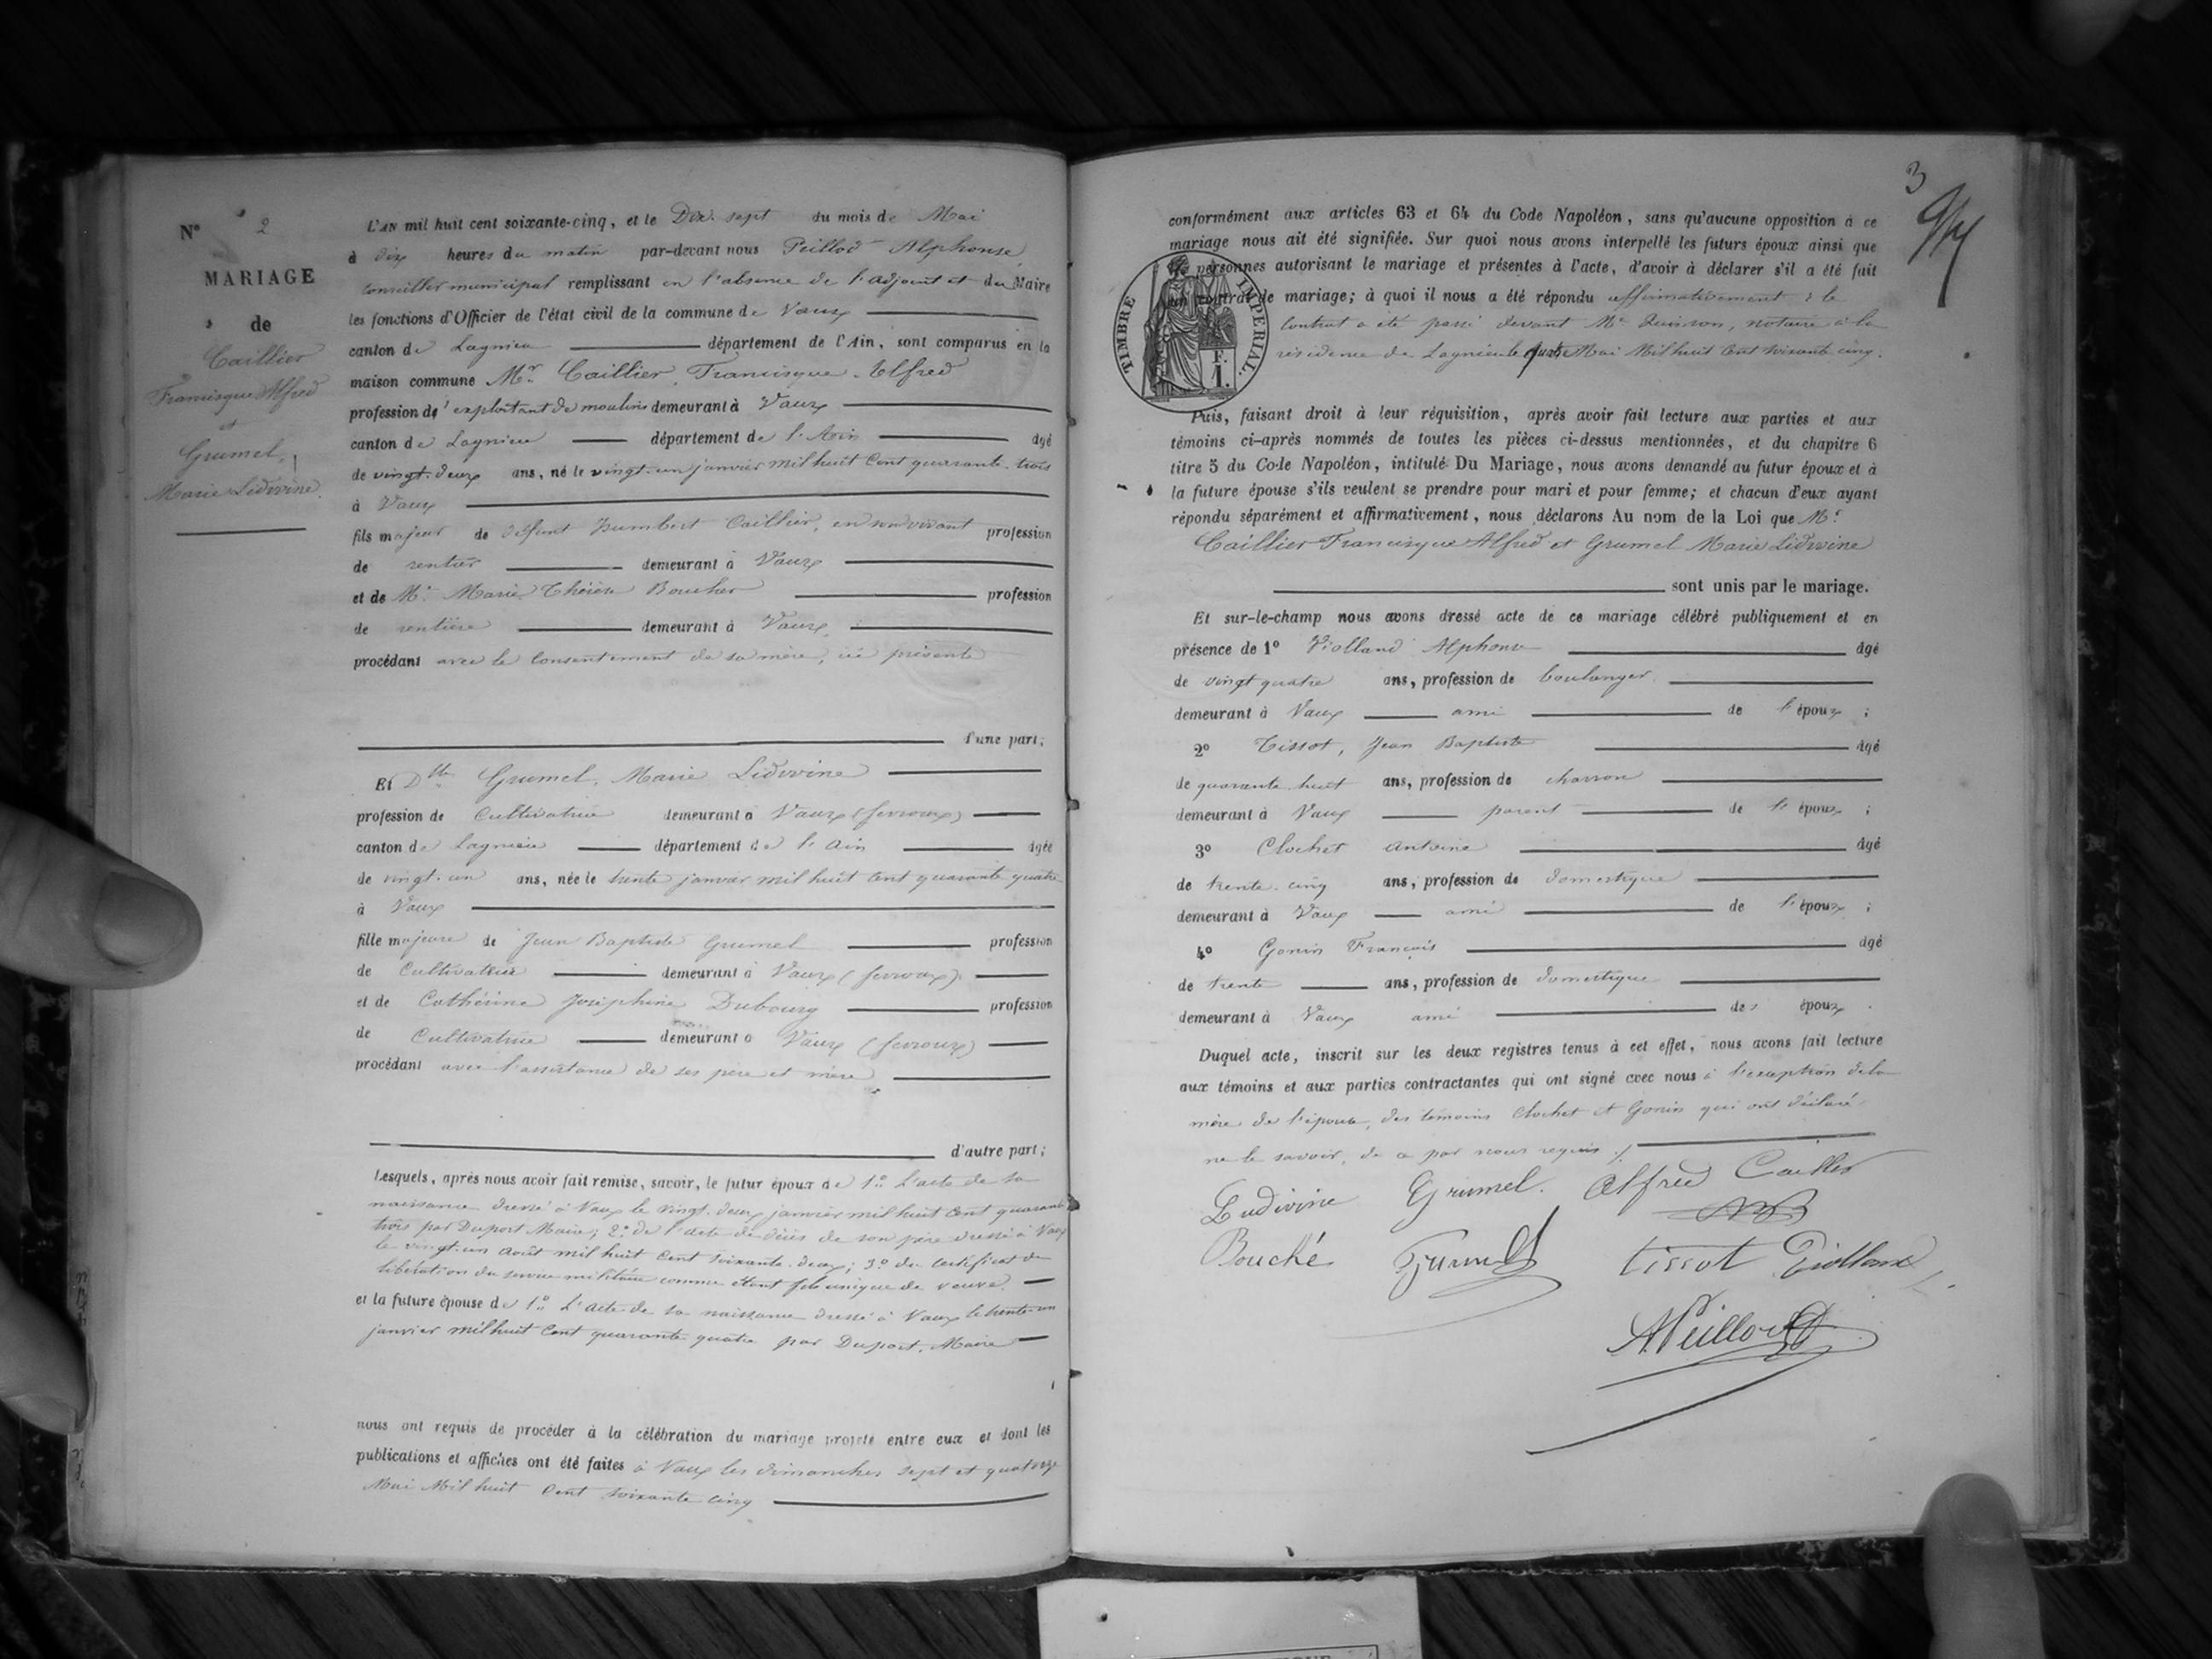 N° 2
MARIAGE
de
Caillier
Francisque Alfred
et
Grumel,
Marie Lidivine.
L'AN mil huit cent soixante-cinq, et le Dix-sept du mois de Mai
à dix heures du matin par-devant nous Peillod Alphonse,
conseiller municipal remplissant en l'absence de l'adjoint et du Maire
les fonctions d'Officier de l'état civil de la commune de Vaux
canton de Lagnieu département de l'Ain, sont comparus en la
maison commune Mr. Caillier, Francisque Alfred
profession d'exploitant de moulins demeurant à Vaux
canton de Lagnieu département de l'Ain âgé
de vingt-deux ans, né le vingt-un janvier mil huit cent quarante-trois
à Vaux
fils majeur de défunt Humbert Caillier, en son vivant profession
de rentier demeurant à Vaux
et de Me. Marie Thérèse Boucher profession
de rentière demeurant à Vaux,
procédant avec le consentement de sa mère, ici présente
d'une part;
Et Dlle Grumel, Marie Lidivine
profession de Cultivatrice demeurant à Vaux (fevroux)
canton de Lagnieu département de l'Ain âgée
de vingt-un ans, née le trente janvier mil huit cent quarante quatre
à Vaux
fille majeure de Jean Baptiste Grumel profession
de Cultivateur demeurant à Vaux (fevroux)
et de Cathérine Joséphine Dubourg profession
de Cultivatrice demeurant à Vaux (fevroux)
procédant avec l'assistance de ses père et mère
d'autre part;
Lesquels, après nous avoir fait remise, savoir, le futur époux de 1° L'acte de sa
naissance dressé à Vaux le vingt-deux janvier mil huit cent quarante
trois par Duport Maire; 2° de l'acte de décès de son père dressé à Vaux
le vingt-un août mil huit cent soixante-deux; 3° du certificat de
libération du service militaire comme étant fils unique de veuve.
et la future épouse de 1° L'acte de sa naissance dressé à Vaux le trente-un
janvier mil huit cent quarante quatre par Duport, Maire
nous ont requis de procéder à la célébration du mariage projeté entre eux et dont les
publications et affiches ont été faites à Vaux les dimanches sept et quatorze
Mai Mil huit cent soixante cinq
3
conformément aux articles 63 et 64 du Code Napoléon, sans qu'aucune opposition à ce
mariage nous ait été signifiée. Sur quoi nous avons interpellé les futurs époux ainsi que
les personnes autorisant le mariage et présentes à l'acte, d'avoir à déclarer s'il a été fait
un contrat de mariage; à quoi il nous a été répondu affirmativement & le
contrat a été passé devant Me Quinson, notaire à la
résidence de Lagnieu le quatre Mai Mil huit cent soixante cinq.
TIMBRE IMPERIAL.
F.
1.
Puis, faisant droit à leur réquisition, après avoir fait lecture aux parties et aux
témoins ci-après nommés de toutes les pièces ci-dessus mentionnées, et du chapitre 6
titre 5 du Code Napoléon, intitulé Du Mariage, nous avons demandé au futur époux et à
la future épouse s'ils veulent se prendre pour mari et pour femme; et chacun d'eux ayant
répondu séparément et affirmativement, nous déclarons Au nom de la Loi que Mr.
Caillier Francisque Alfred et Grumel Marie Lidivine
sont unis par le mariage.
Et sur-le-champ nous avons dressé acte de ce mariage célébré publiquement et en
présence de 1° Piolland Alphonse âgé
de vingt quatre ans, profession de boulanger.
demeurant à Vaux ami de l'époux ;
2° Tissot, Jean Baptiste âgé
de quarante huit ans, profession de charron
demeurant à Vaux parent de l'époux ;
3° Clochet Antoine âgé
de trente-cinq ans, profession de domestique
demeurant à Vaux ami de l'époux ;
4° Gonin François âgé
de trente ans, profession de domestique
demeurant à Vaux ami des époux .
Duquel acte, inscrit sur les deux registres tenus à cet effet, nous avons fait lecture
aux témoins et aux parties contractantes qui ont signé avec nous à l'exception de la
mère de l'épouse, des témoins Clochet et Gonin qui ont déclaré
ne le savoir, de ce par nous requis ./.
Ludivine Grumel. Alfred Caillier
Bouché Grumel tissot Piolland
APeillod